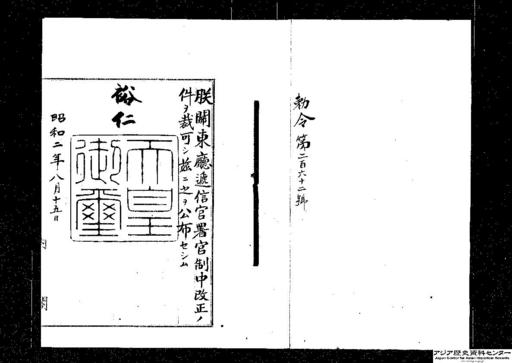 勅令第二百六十二號
朕關東廳遞信官署官制中改正ノ
件ヲ裁可シ茲ニ之ヲ公布セシム
裕仁
天皇御璽
昭和二年八月十五日
内閣
アジア歴史資料センター
Japan Center for Asian Historical Records